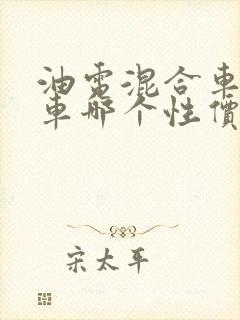 油電混合車
車哪个性價
宋太平